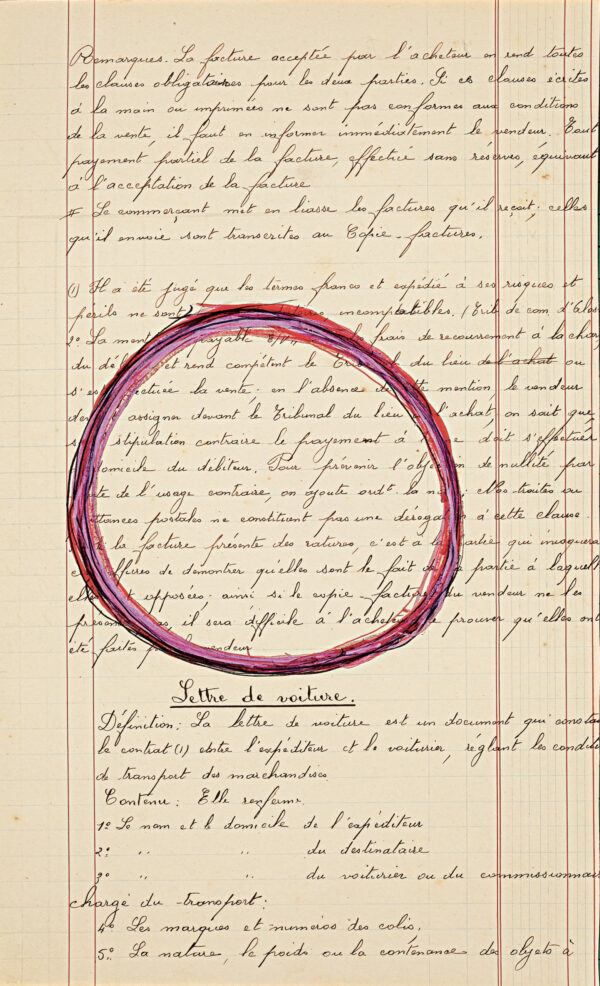 Remarques. La facture acceptée par l'acheteur en rend toutes
les clauses obligatoires pour les deux parties. Si ces clauses écrites
à la main ou imprimées ne sont pas conformes aux conditions
de la vente, il faut en informer immédiatement le vendeur. Tout
payement partiel de la facture, effectué sans réserves, équivaut
à l'acceptation de la facture
# Le commerçant met en liasse les factures qu'il reçoit; celles
qu'il envoie sont transcrites au Copie-factures.
(1) Il a été jugé que les termes franco et expédié à ses risques et
périls ne sont incompatibles. (Trib. de com d'Alos
2° La payable frais de recouvrement à la char
du et rend compétent le du lieu de l'achat ou
s'es la vente; en l'absence mention, le vendeur
assigner devant le Tribunal du lieu l'achat, on sait que,
stipulation contraire le payement à doit s'effectuer
domicile du débiteur. Pour prévenir l'objection de nullité par
de l'usage contraire, on ajoute ordt. la : Nos traites ou
postales ne constituent pas une à cette clause.
la facture présente des ratures, c'est à la partie qui
de démontrer qu'elles sont le fait de partie à laquell
opposées. ainsi si le copie-factures du vendeur ne les
il sera difficile à l'acheteur prouver qu'elles ont
été faites vendeur
Lettre de voiture.
Définition: La lettre de voiture est un document qui consta
le contrat (1) entre l'expéditeur et le voiturier, réglant les condit
de transport des marchandises
Contenu: Elle renferme.
1° Le nom et le domicile de l'expéditeur
2° " " du destinataire
3° " " du voiturier ou du commissionnai
chargé du transport:
4° Les marques et numéros des colis,
5° La nature, le poids ou la contenance des objets à